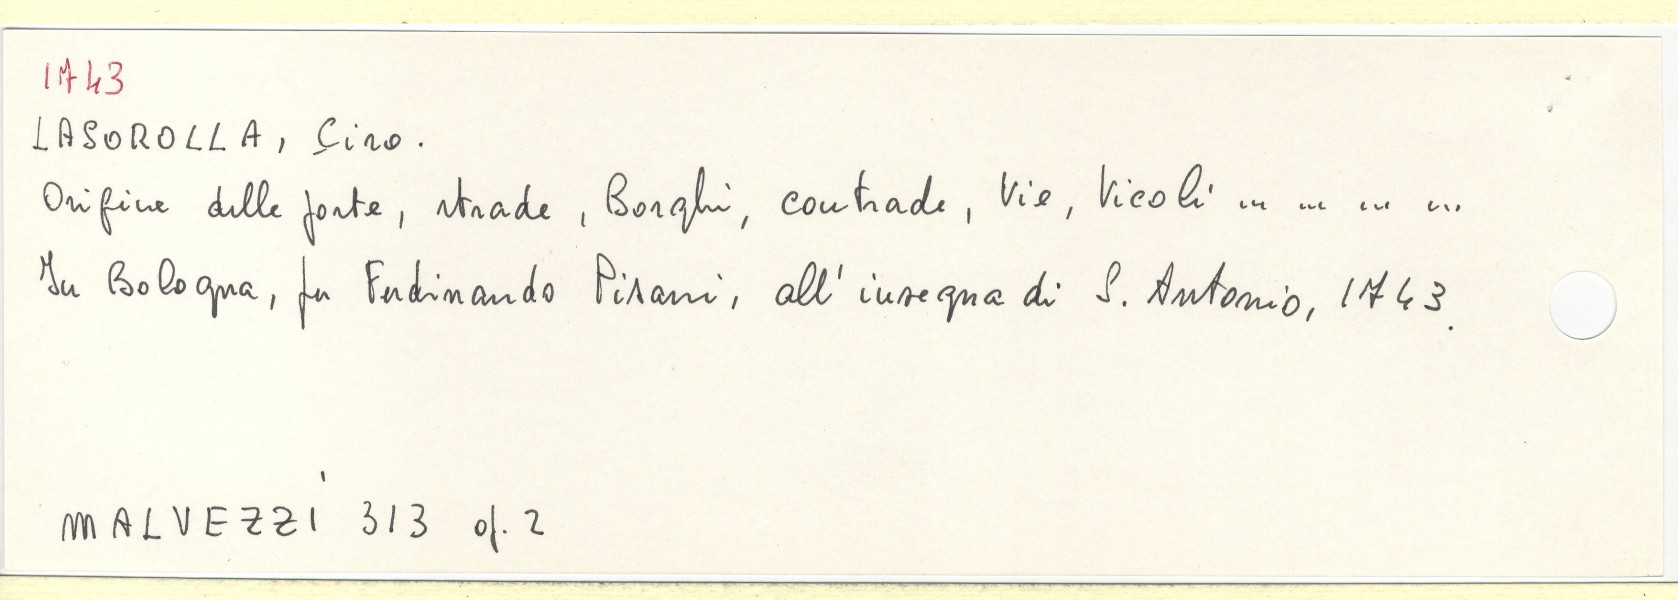 1743
LASOROLLA, Ciro.
Origine delle porte, strade, Borghi, contrade, Vie, Vicoli ... ... ... ...
In Bologna, per Ferdinando Pisani, all'insegna di S. Antonio, 1743.
MALVEZZI 313 op. 2